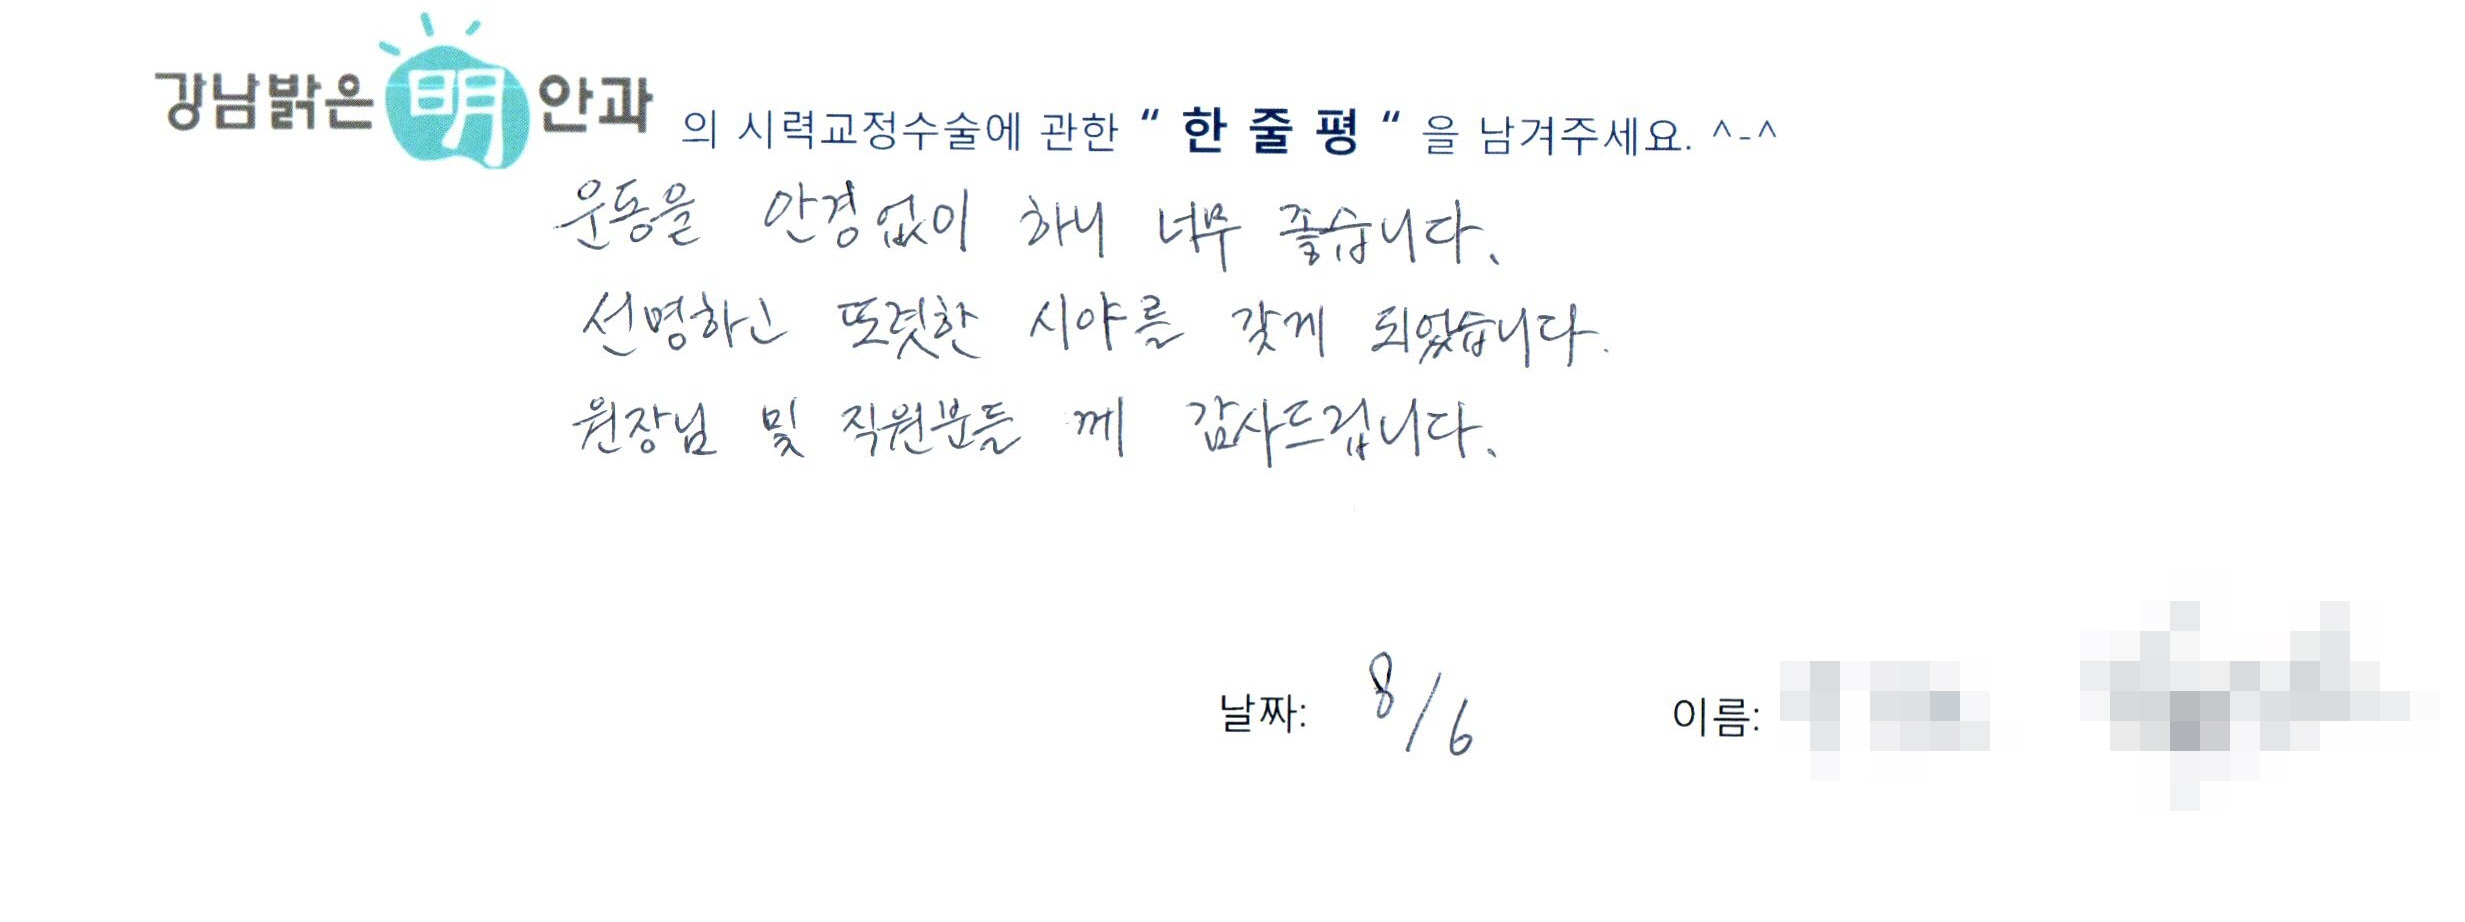 강남밝은 明 안과 의 시력교정수술에 관한 “ 한 줄 평 “ 을 남겨주세요. ^-^
운동을 안경없이 하니 너무 좋습니다.
선명하고 또렷한 시야를 갖게 되었습니다.
원장님 및 직원분들 께 감사드립니다.
날짜: 8/6 이름: